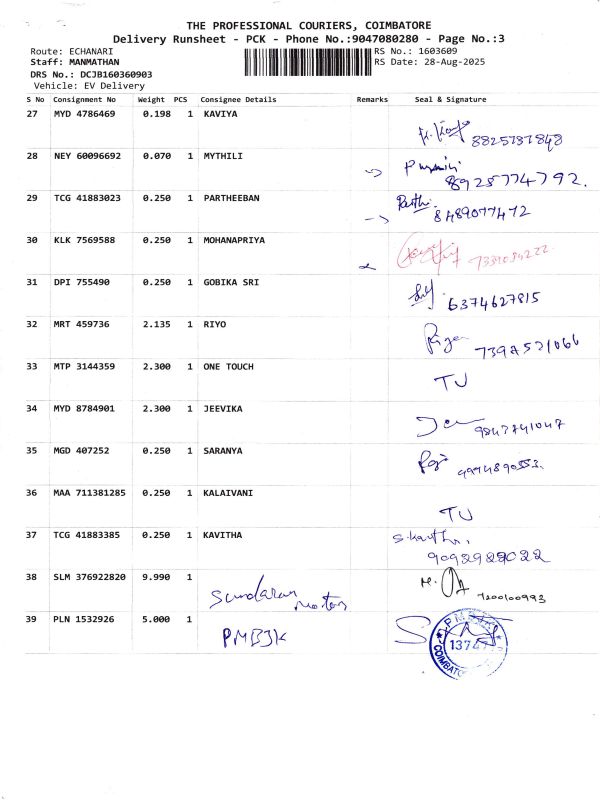 THE PROFESSIONAL COURIERS, COIMBATORE
Delivery Runsheet - PCK - Phone No.:9047080280 - Page No.:3
Route: ECHANARI RS No.: 1603609
Staff: MANMATHAN RS Date: 28-Aug-2025
DRS No.: DCJB160360903
Vehicle: EV Delivery
S No Consignment No Weight PCS Consignee Details Remarks Seal & Signature
27 MYD 4786469 0.198 1 KAVIYA
8825787848
28 NEY 60096692 0.070 1 MYTHILI
8925774792.
29 TCG 41883023 0.250 1 PARTHEEBAN
8489077472
30 KLK 7569588 0.250 1 MOHANAPRIYA
31 DPI 755490 0.250 1 GOBIKA SRI
6374627815
32 MRT 459736 2.135 1 RIYO
33 MTP 3144359 2.300 1 ONE TOUCH
TU
34 MYD 8784901 2.300 1 JEEVIKA
35 MGD 407252 0.250 1 SARANYA
36 MAA 711381285 0.250 1 KALAIVANI
TU
37 TCG 41883385 0.250 1 KAVITHA
38 SLM 376922820 9.990 1
Sundaram motors
7200100993
39 PLN 1532926 5.000 1
PMBJK